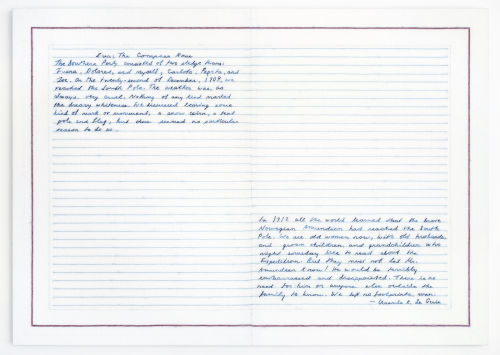 Sur; The Compass Rose
The Southern Party consisted of two sledge teams:
Juana, Dolores, and myself; Carlota, Pepita, and
Zoe. On the twenty-second of December, 1909, we
reached the South Pole. The weather was, as
always, very cruel. Nothing of any kind marked
the dreary whiteness. We discussed leaving some
kind of mark or monument, a snow cairn, a tent
pole and flag; but there seemed no particular
reason to do so.
In 1912 all the world learned that the brave
Norwegian Amundsen had reached the South
Pole. We are old women now, with old husbands,
and grown children, and grandchildren who
might someday like to read about the
Expedition. But they must not let Mr.
Amundsen know! He would be terribly
embarrassed and disappointed. There is no
need for him or anyone else outside the
family to know. We left no footprints, even.
— Ursula K. Le Guin